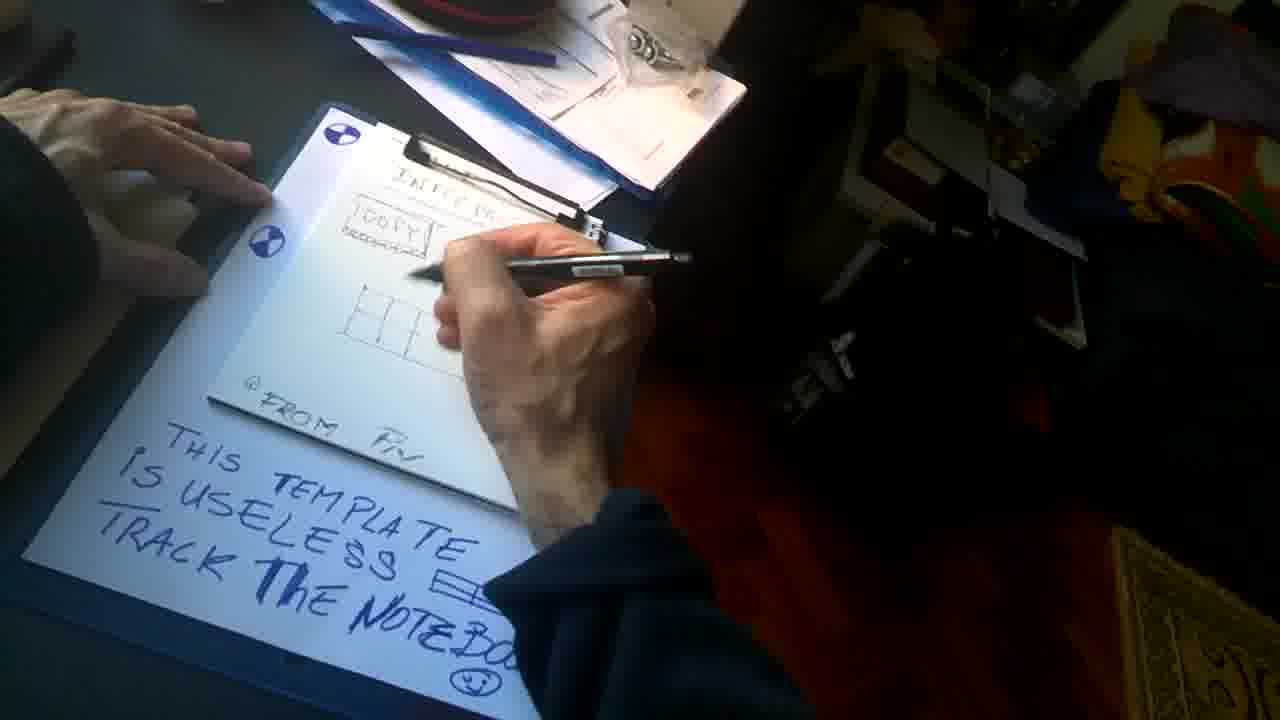 100 PY
@ FROM Piv
THIS TEMPLATE
iS USELESS
TRACK THE NOTEBOO